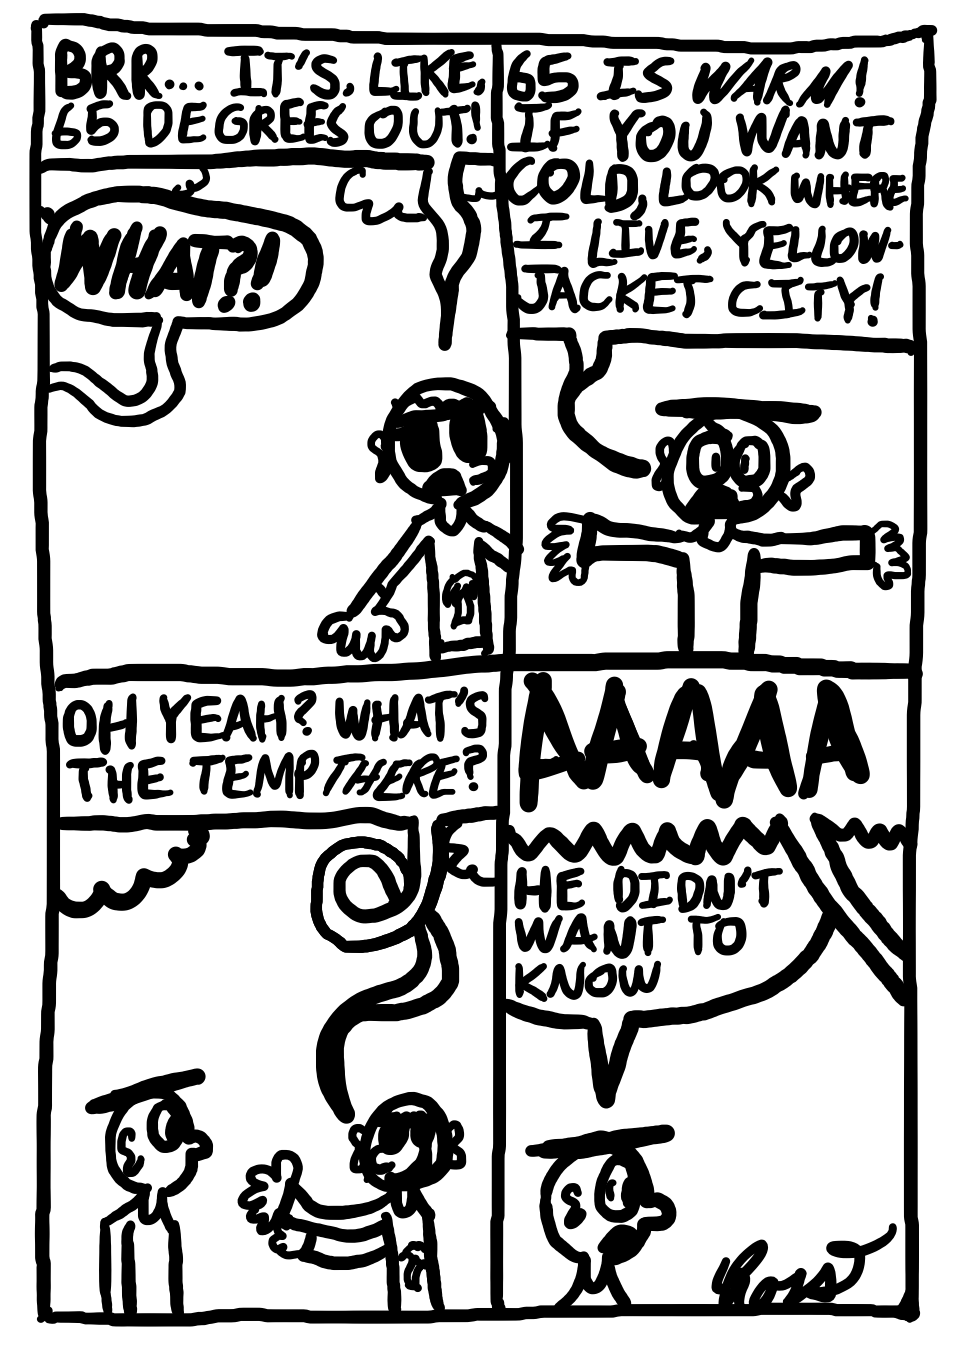 BRR... IT'S, LIKE,
65 DEGREES OUT!
WHAT?!
65 IS WARM!
IF YOU WANT
COLD, LOOK WHERE
I LIVE, YELLOW-
JACKET CITY!
OH YEAH? WHAT'S
THE TEMP THERE?
AAAAA
HE DIDN'T
WANT TO
KNOW
Ross